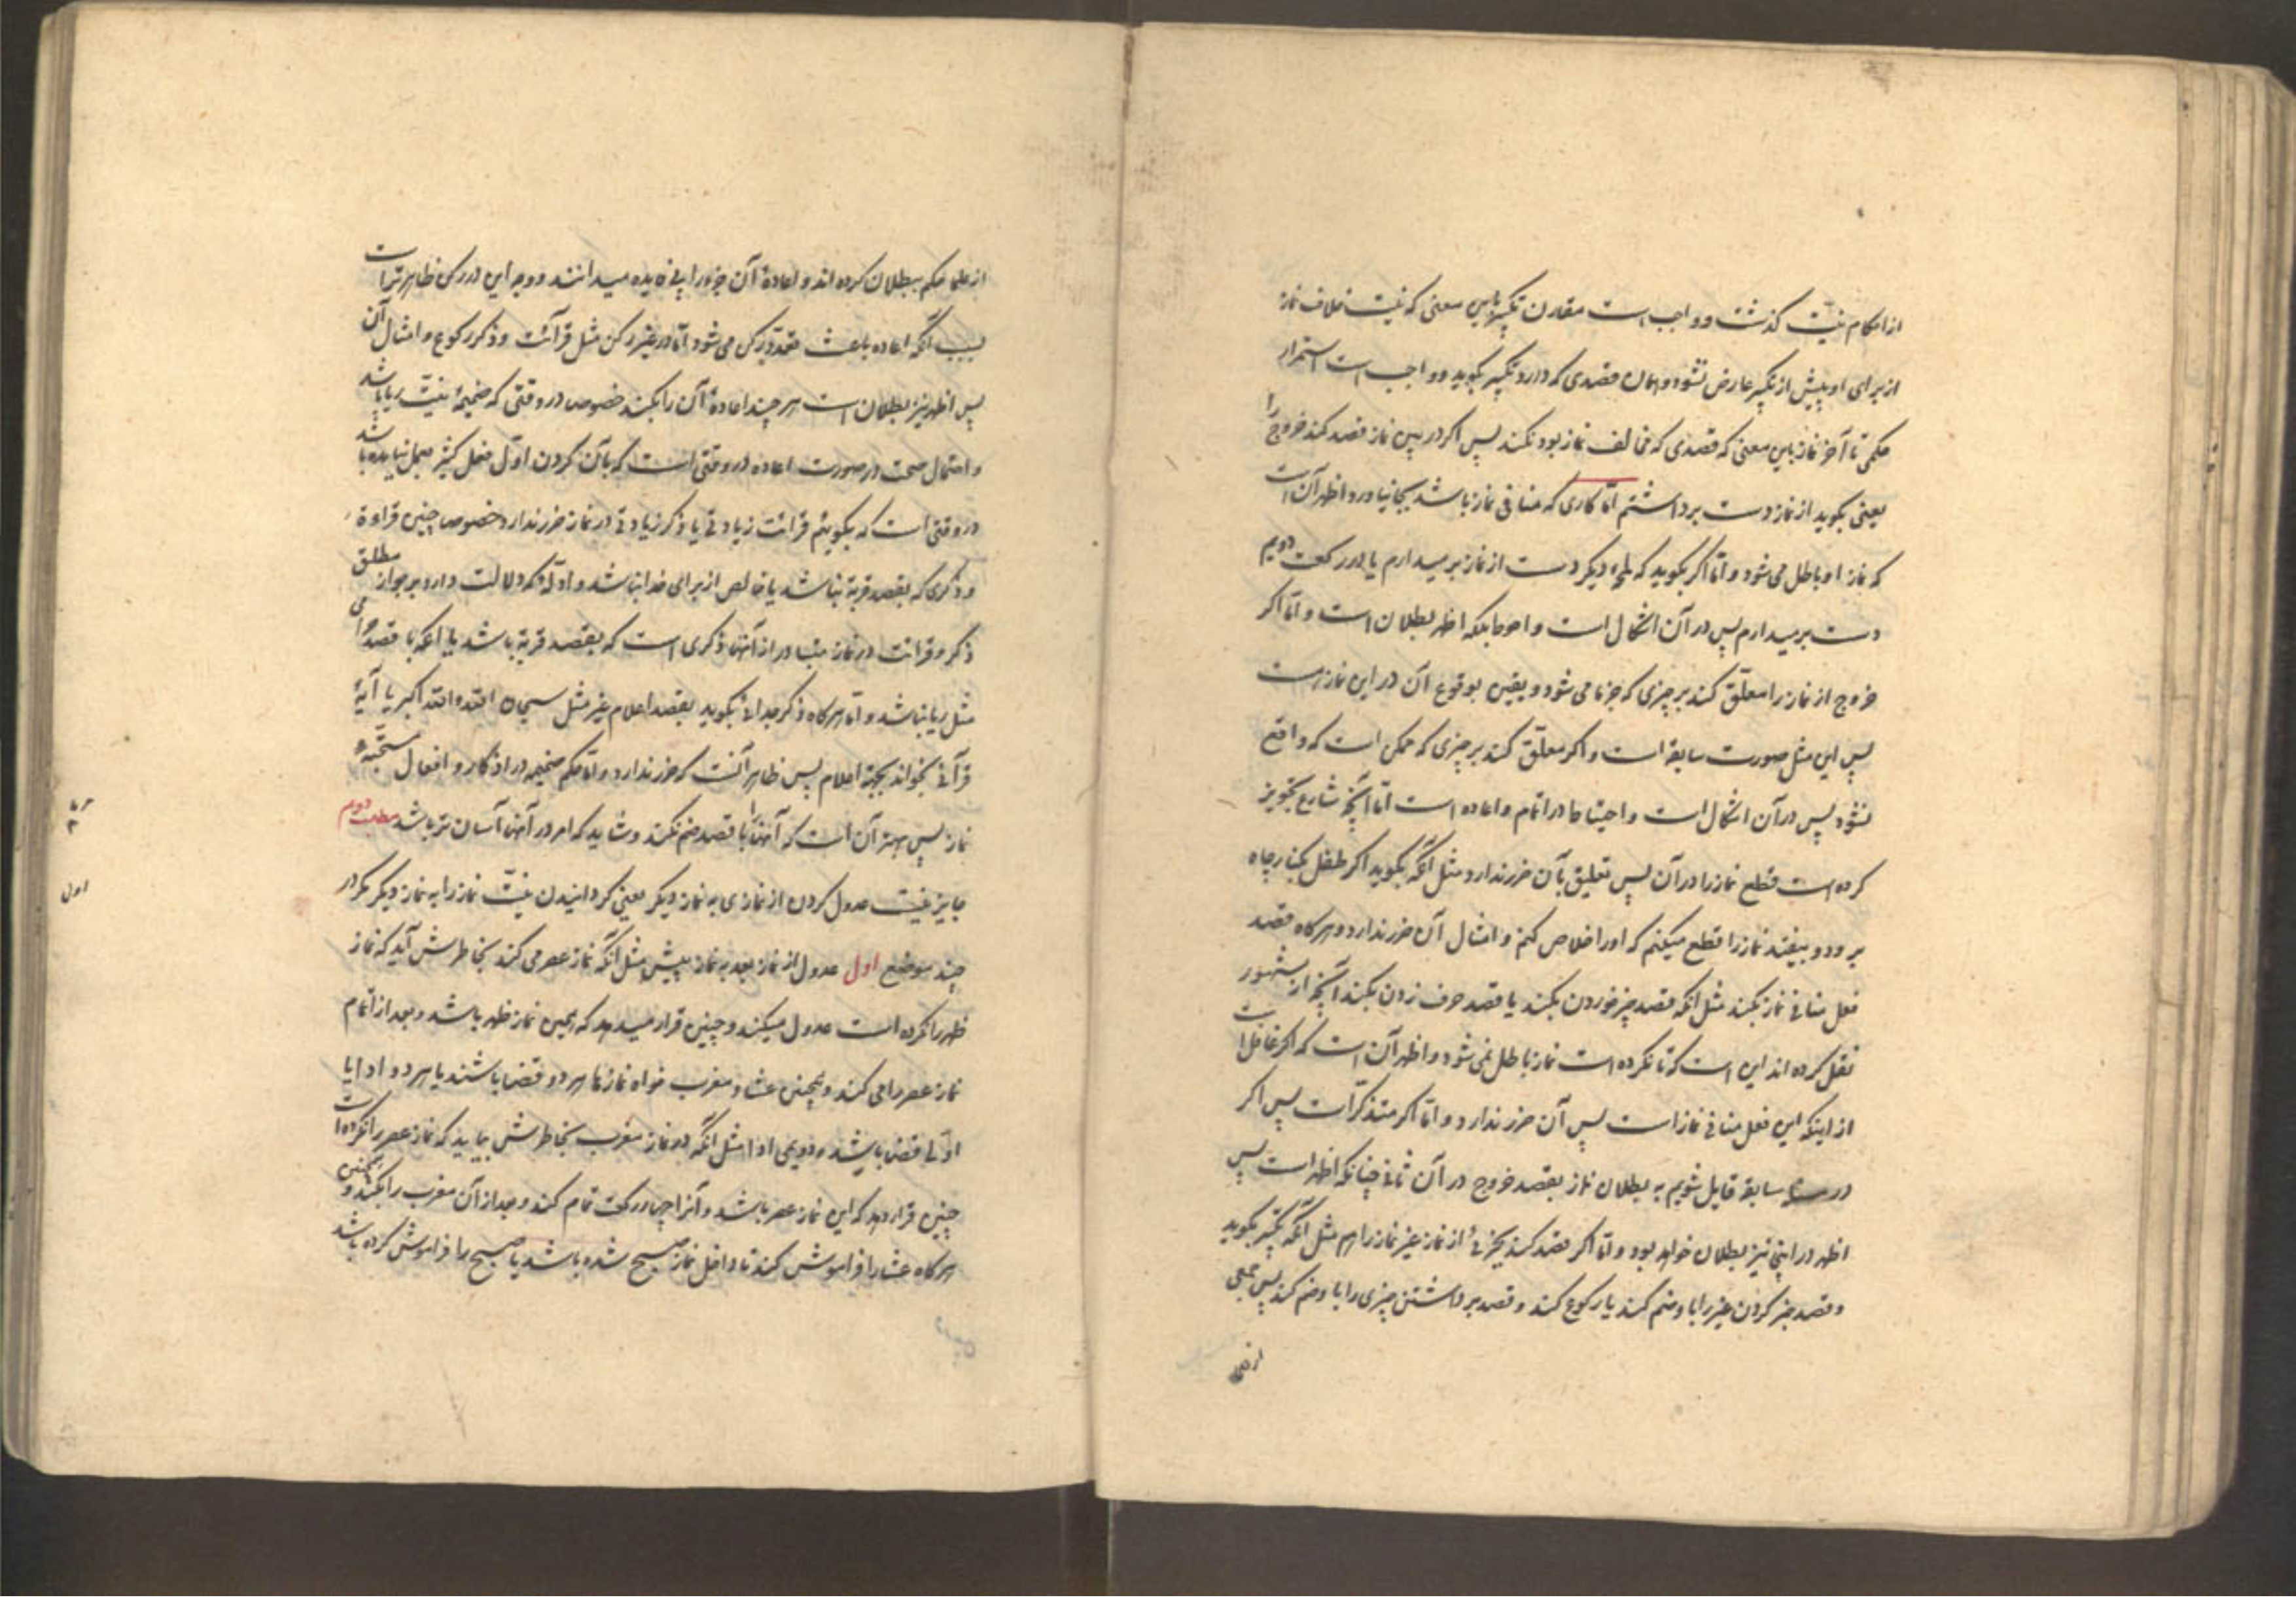 از احکام نیّت گذشت و واجب است مقارن تکبیر باین معنی که نیّت خلاف نماز
از برای او پیش از تکبیر عارض نشود و همان قصدی که دارد تکبیر بگوید و واجب است استمرار
حکمی تا آخر نماز باین معنی که قصدی که مخالف نماز بود نکند پس اگر در بین نماز قصد کند خروج را
یعنی بگوید از نماز دست برداشتم امّا کاری که منافی نماز باشد بجا نیاورد اظهر آن است
که نماز او باطل می شود و امّا اگر بگوید که لمحهٔ دیگر دست از نماز بر میدارم یا در رکعت دویم
دست بر میدارم پس در آن اشکال است و احوط بلکه اظهر بطلان است و امّا اگر
خروج از نماز را معلّق کند بر چیزی که جزما می شود و یقین بوقوع آن در این نماز است
پس این مثل صورت سابقه است و اگر معلّق کند بر چیزی که ممکن است که واقع
نشود پس در آن اشکال است و احتیاط در اتمام و اعاده است امّا آنچه شارع تجویز
کرده است قطع نماز را در آن پس تعلیق بآن ضرر ندارد مثل آنکه بگوید اگر طفل بکنار چاه
برود و بیفتد نماز را قطع میکنم که او را خلاص کنم و امثال آن ضرر ندارد و هر گاه قصد
فعل منافی نماز بکند مثل آنکه قصد چیز خوردن بکند یا قصد حرف زدن بکند آنچه از مشهور
نقل کرده اند این است که تا نکرده است نماز باطل نمی شود و اظهر آن است که اگر غافل است
از اینکه این فعل منافی نماز است پس آن ضرر ندارد و امّا اگر متذکّر است پس اگر
در سابقه قایل شویم به بطلان نماز بقصد خروج در آن ثانی چنانکه اظهر است پس
اظهر در اینجا نیز بطلان خواهد بود و امّا اگر قصد کند بجزئی از نماز غیر نماز را هم مثل آنکه تکبیر بگوید
و قصد خبر کردن غیر را با او ضم کند یا رکوع کند و قصد برداشتن چیزی را با او ضم کند پس جمعی
از علما
از علما حکم ببطلان کرده اند و اعادهٔ آن جزو را بی فایده میدانند و وجه این در رکن ظاهرتر است
بسبب آنکه اعاده باعث تعدّد رکن می شود امّا در غیر رکن مثل قرائت و ذکر رکوع و امثال آن
پس اظهر نیز بطلان است هر چند اعادهٔ آن را بکند خصوص در وقتی که ضمیمهٔ نیّت ریا باشد
و احتمال صحت در صورت اعاده در وقتی است که بآن کردن اوّل فعل کثیر بعمل نیامده باشد
در وقتی است که بگوییم قرائت زیادتی یا ذکر زیادتی در نماز ضرر ندارد خصوص چنین قراءة
و ذکری که بقصد قربة نباشد یا خالص از برای خدا نباشد و ادلّهٔ که دلالت دارد بر جواز مطلق
ذکر و قرائت در نماز متبادر از آنها ذکری است که بقصد قربة باشد یا آنکه با قصد حرامی
مثل ریا نباشد و امّا هر گاه ذکر جدائی بگوید بقصد اعلام غیر مثل سبحان الله و الله اکبر یا آیهٔ
قرآنی بخواند بجهة اعلام پس ظاهر آنست که ضرر ندارد و امّا حکم ضمیمه در اذکار و افعال مستحبّهٔ
نماز پس بهتر آن است که آنها را با قصد ضم نکند و شاید که امر در آنها آسان تر باشد مطلب دویم
جایز نیست عدول کردن از نمازی به نماز دیگر یعنی گردانیدن نیّت نماز را به نماز دیگر مگر در
چند موضع اول عدول از نماز بعد به نماز پیش مثل آنکه نماز عصر می کند بخاطرش آید که نماز
ظهر را نکرده است عدول میکند و چنین قرار میدهد که همین نماز ظهر باشد و بعد از اتمام
نماز عصر را می کند و همچنین عشا و مغرب خواه نمازها هر دو قضا باشند یا هر دو ادا یا
اوّلی قضا باشد و دویمی ادا مثل آنکه در نماز مغرب بخاطرش بیاید که نماز عصر را نکرده است
چنین قرار دهد که این نماز عصر باشد و آنرا چهار رکعت تمام کند و بعد از آن مغرب را بکند و همچنین
هر گاه عشا را فراموش کند تا داخل نماز صبح شده باشد یا صبح را فراموش کرده باشد
اول